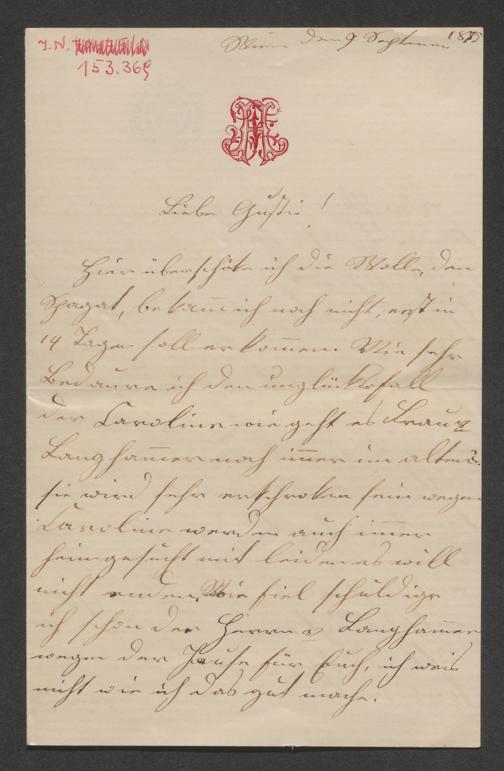 J. N.
153.369
Wien den 9 September 1875
Liebe Gusti!
Hier überschike ich die Wolle, den
Spagat, bekamm ich noch nicht, erst in
14 Tagen soll er kommen. Wie sehr
Bedaure ich den unglücksfall
der Caroline wie geht es Frau v
Langhammer noch immer im alten
sie wird sehr erschroken sein wegen
Caroline werden auch immer
heimgesucht mit leiden es will
nicht enden. Wie fiel schuldige
ich schon der Herrn v Langhammer
wegen der Jause für Euch, ich weis
nicht wie ich das gut mache.